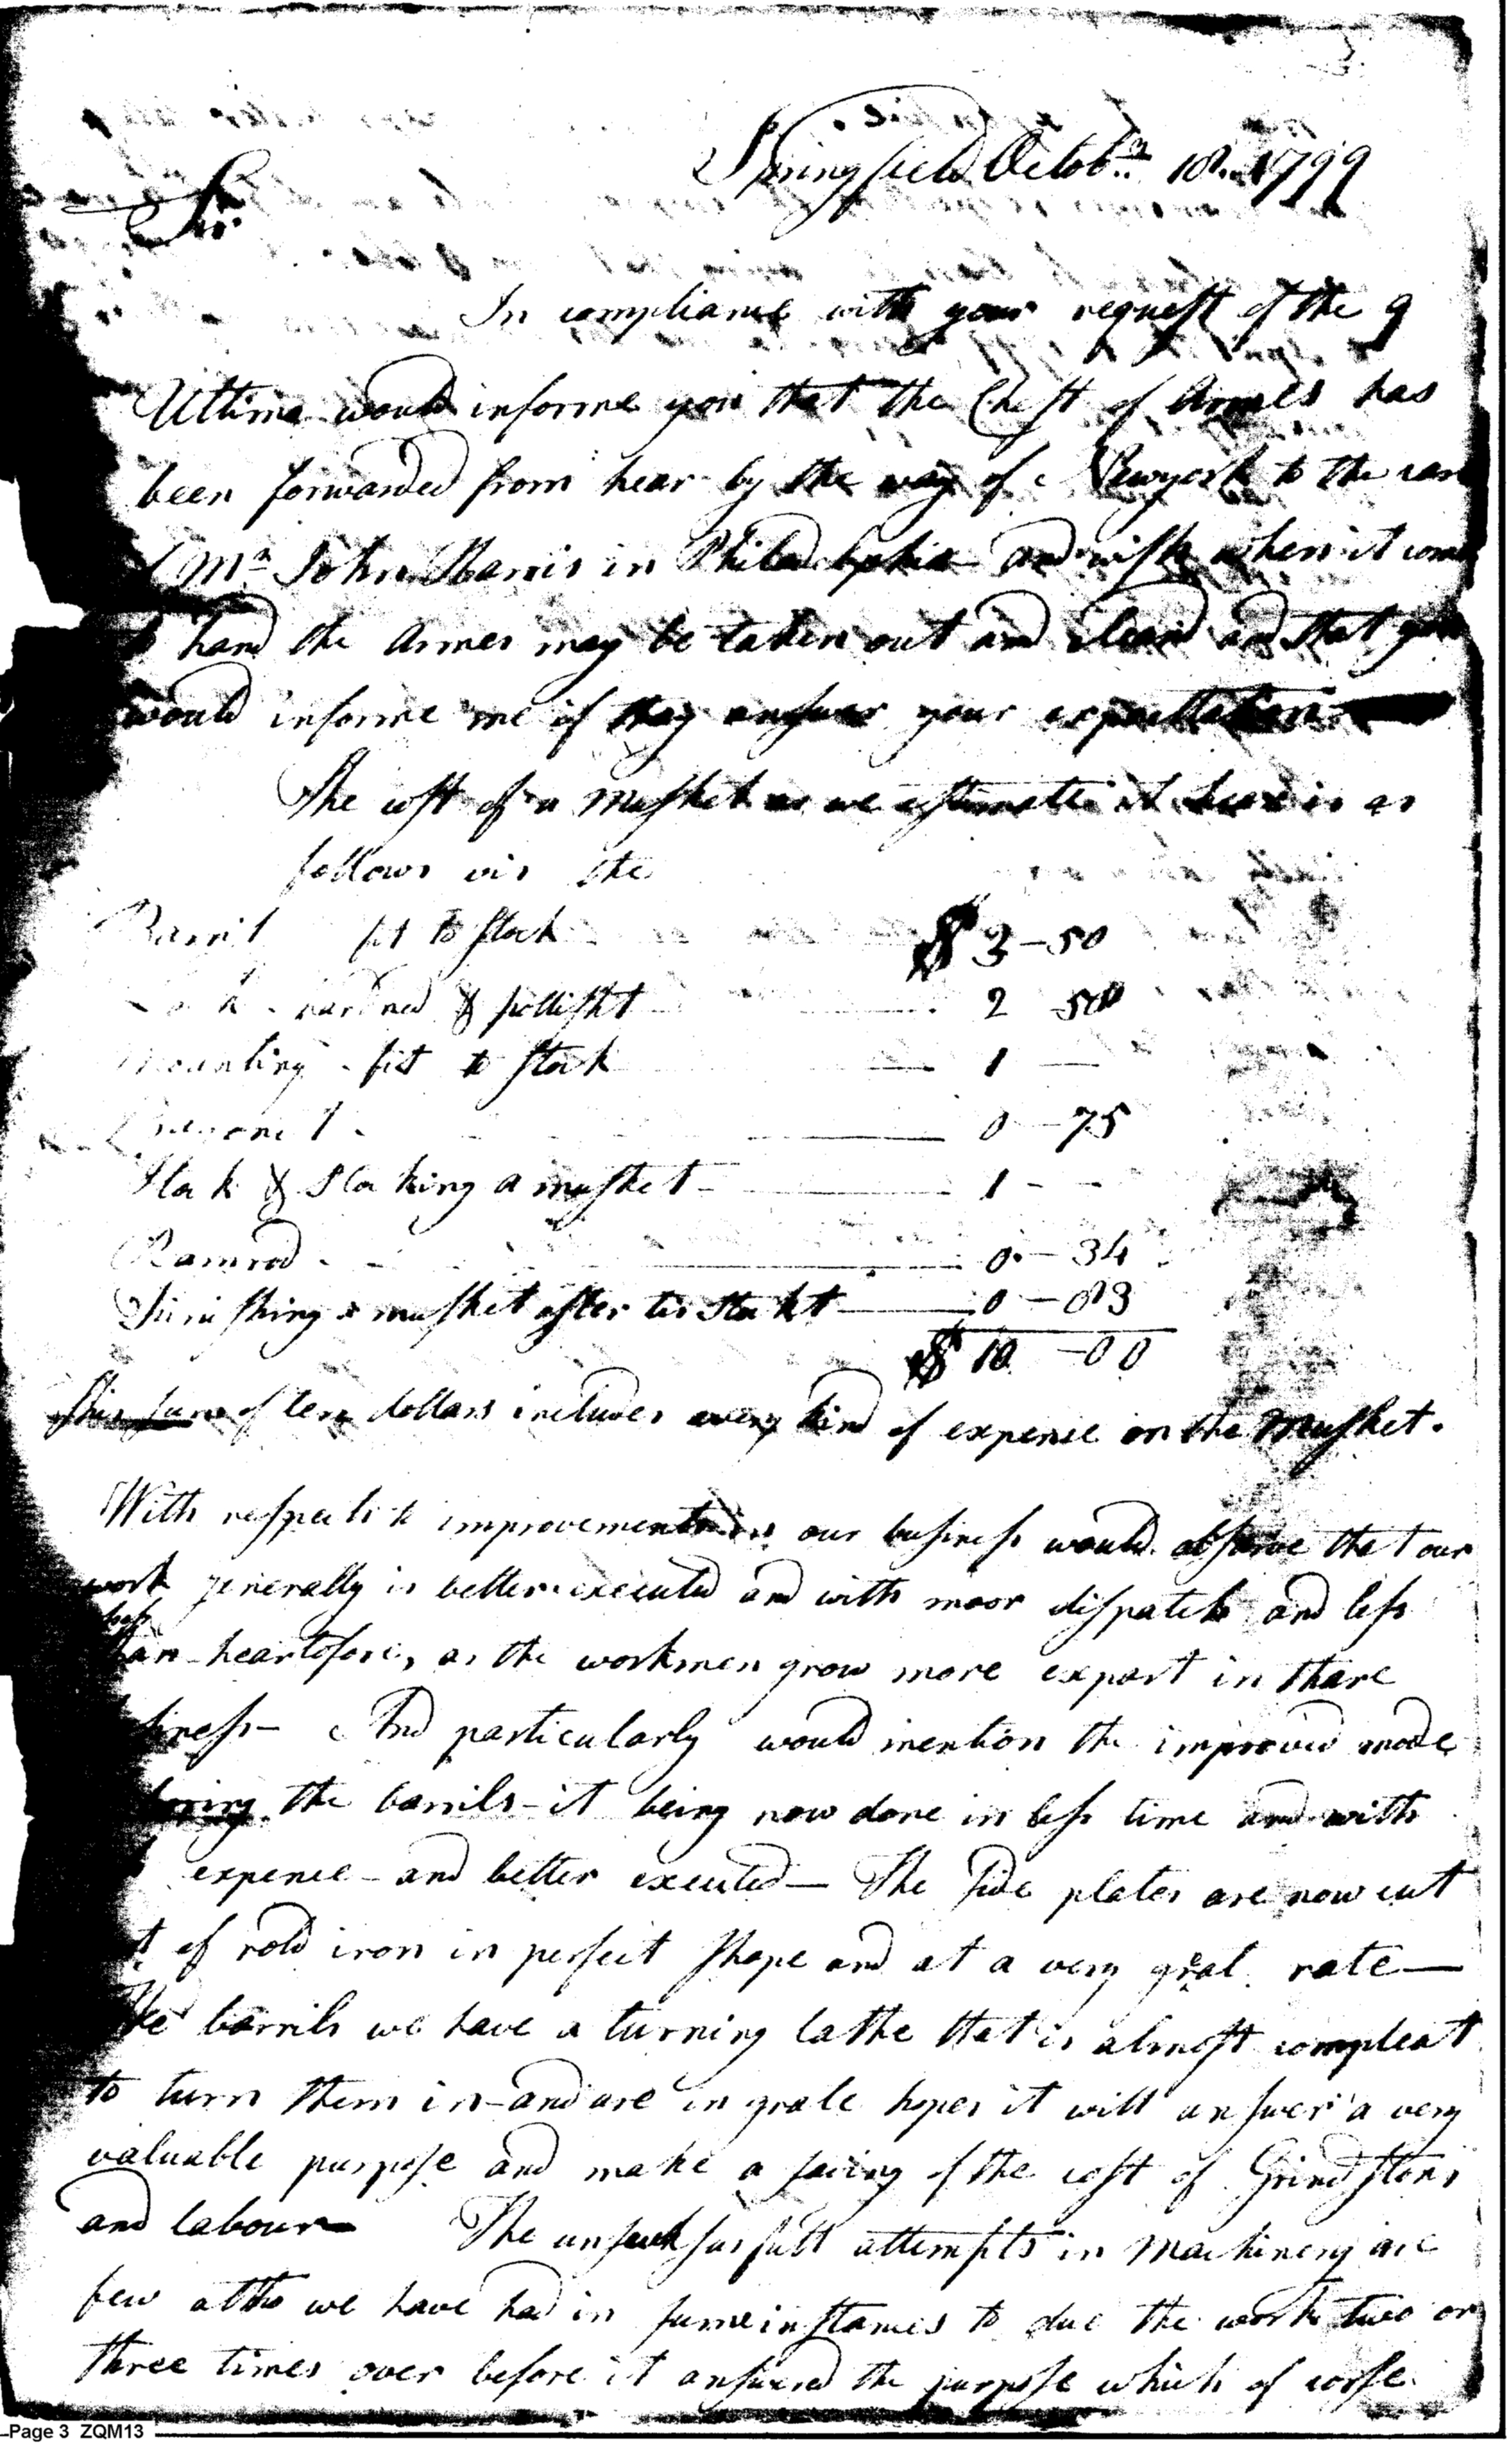 Springfield Octobr 18. 1799
Sir
In compliance with your request of the 9
Ultimo would informe you that the Chest of Armes has
been forwarded from hear by the way of Newyork to the care
Mr John Harris in Philadelphia and wish when it come
hand the Armes may be taken out and cleand and that you
would informe me if thay answer your expectations
The cost of a Musket as we estimate it hear is as
follows vis the
Barril fit to stock $ 3-50
hardned & pollisht 2 50
Mounting - fit to stock 1 —
0-75
Stock & Stocking a musket 1 - -
Ramrod - - 0-34
Finishing a musket after tis Stockt 0-93
$ 10-00
This sum of ten dollars includes every kind of expence on the Musket.
With respects to improvements in our business would observe that our
work generally is better executed and with moor dispatch and less
than heartofore, as the workmen grow more expart in thare
siness - And particularly would mention the improved mode
boring the barrils - it being now done in less time and with
expence - and better executed — The side plates are now cut
t of rold iron in perfect shape and at a very grat rate —
The barrils we have a turning lathe that is almost compleat
to turn them in - and are in grate hopes it will answer a very
valuable purpose and make a saving of the cost of Grindstons
and labour The unsucksesfull attempts in Machinery are
few altho we have had in sume instances to due the work two or
three times over before it answered the purpose which of corse
Page 3 ZQM13